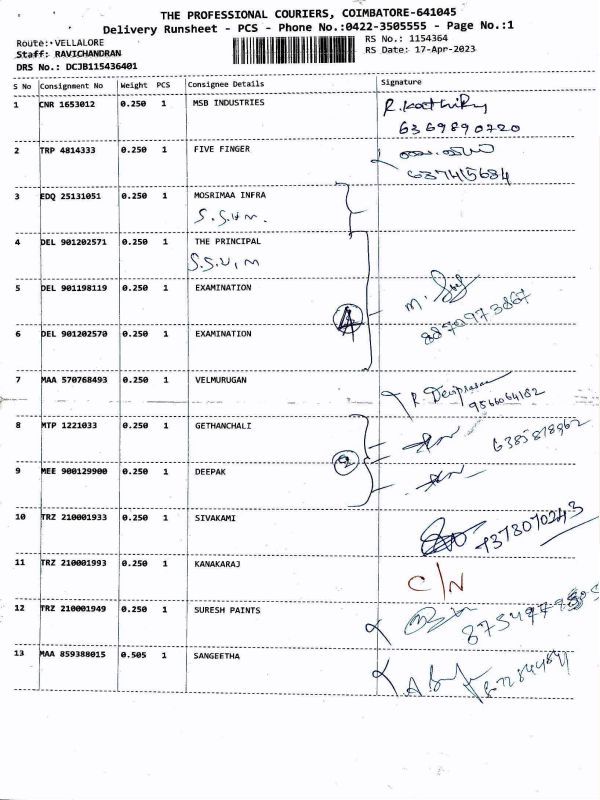 THE PROFESSIONAL COURIERS, COIMBATORE-641045
Delivery Runsheet - PCS - Phone No.:0422-3505555 - Page No.:1
Route: VELLALORE
RS No.: 1154364
Staff: RAVICHANDRAN
RS Date: 17-Apr-2023
DRS No.: DCJB115436401
S No Consignment No Weight PCS Consignee Details Signature
1 CNR 1653012 0.250 1 MSB INDUSTRIES
6369890720
2 TRP 4814333 0.250 1 FIVE FINGER
3 EDQ 25131051 0.250 1 MOSRIMAA INFRA
4 DEL 901202571 0.250 1 THE PRINCIPAL
5 DEL 901198119 0.250 1 EXAMINATION
8870973867
6 DEL 901202570 0.250 1 EXAMINATION
4
7 MAA 570768493 0.250 1 VELMURUGAN
9566064182
8 MTP 1221033 0.250 1 GETHANCHALI
6385878962
9 MEE 900129900 0.250 1 DEEPAK
2
10 TRZ 210001933 0.250 1 SIVAKAMI
11 TRZ 210001993 0.250 1 KANAKARAJ
C/N
12 TRZ 210001949 0.250 1 SURESH PAINTS
13 MAA 859388015 0.505 1 SANGEETHA